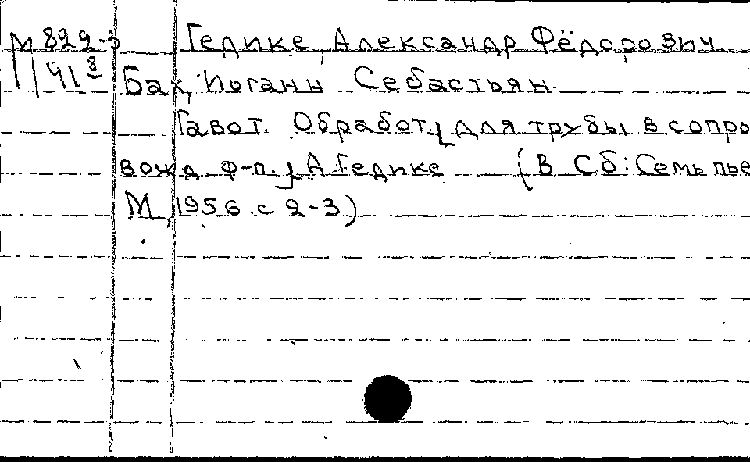 М 822-3 Гедике, Александр Фёдорович
11/41 8 Бах, Иоганн Себастьян
Гавот. Обработ. [для трубы в сопро
вожд. ф-п.] А. Гедике (В Сб: Семь пье
М, 1956 с 2-3)